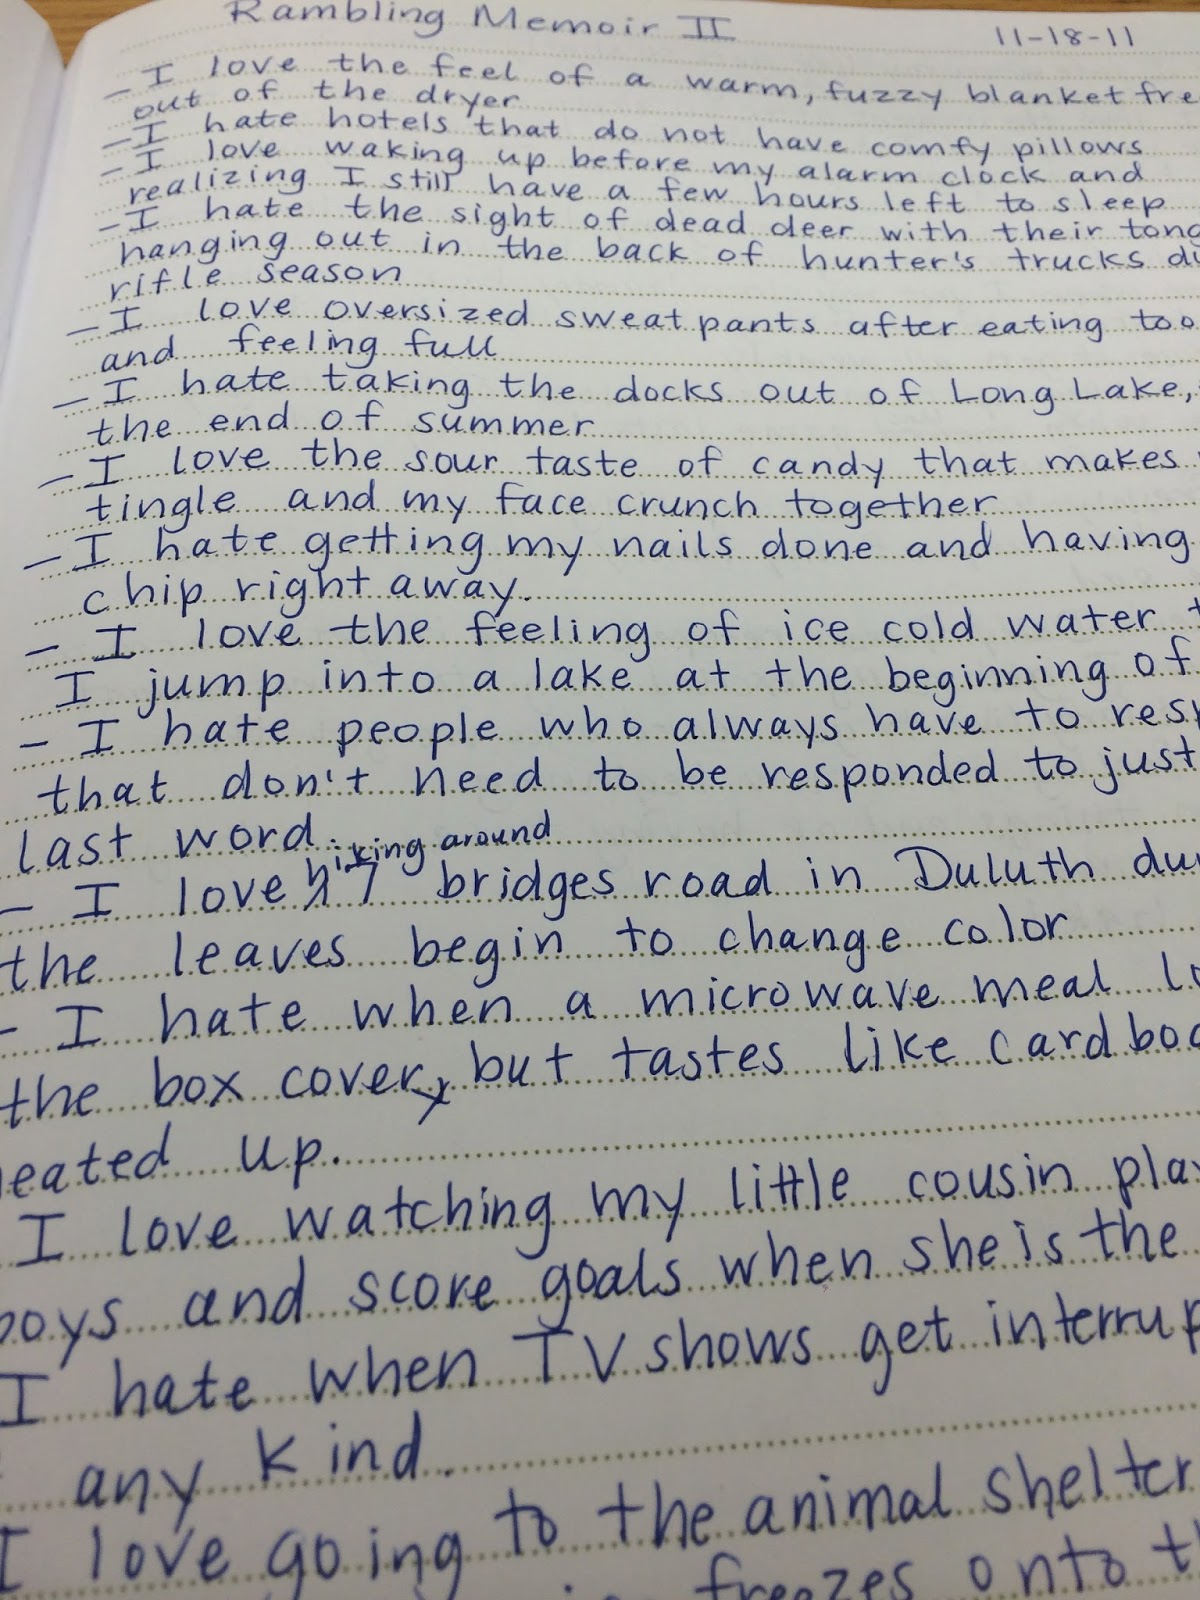 Rambling Memoir II
11-18-11
- I love the feel of a warm, fuzzy blanket fre
out of the dryer
- I hate hotels that do not have comfy pillows
- I love waking up before my alarm clock and
realizing I still have a few hours left to sleep
- I hate the sight of dead deer with their tong
hanging out in the back of hunter's trucks du
rifle season
- I love oversized sweatpants after eating too
and feeling full
- I hate taking the docks out of Long Lake,
the end of summer
- I love the sour taste of candy that makes
tingle and my face crunch together
- I hate getting my nails done and having
chip right away.
- I love the feeling of ice cold water
I jump into a lake at the beginning of
- I hate people who always have to resp
that don't need to be responded to just
last word.
hiking around
- I love 7 bridges road in Duluth du
the leaves begin to change color
- I hate when a microwave meal lo
the box cover, but tastes like cardboa
eated up.
I love watching my little cousin play
boys and score goals when she is the
I hate when TV shows get interrup
any kind.
I love going to the animal shelter
freezes onto th